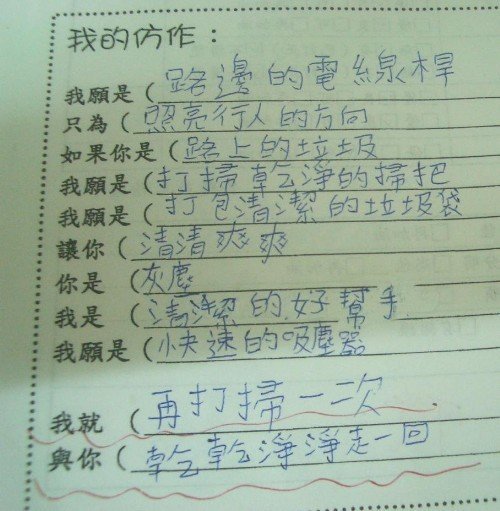 我的仿作：
我願是（路邊的電線桿
只為（照亮行人的方向
如果你是（路上的垃圾
我願是（打掃乾淨的掃把
我願是（打包清潔的垃圾袋
讓你（清清爽爽
你是（灰塵
我是（清潔的好幫手
我願是（快速的吸塵器
我就（再打掃一次.
與你（乾乾淨淨走一回